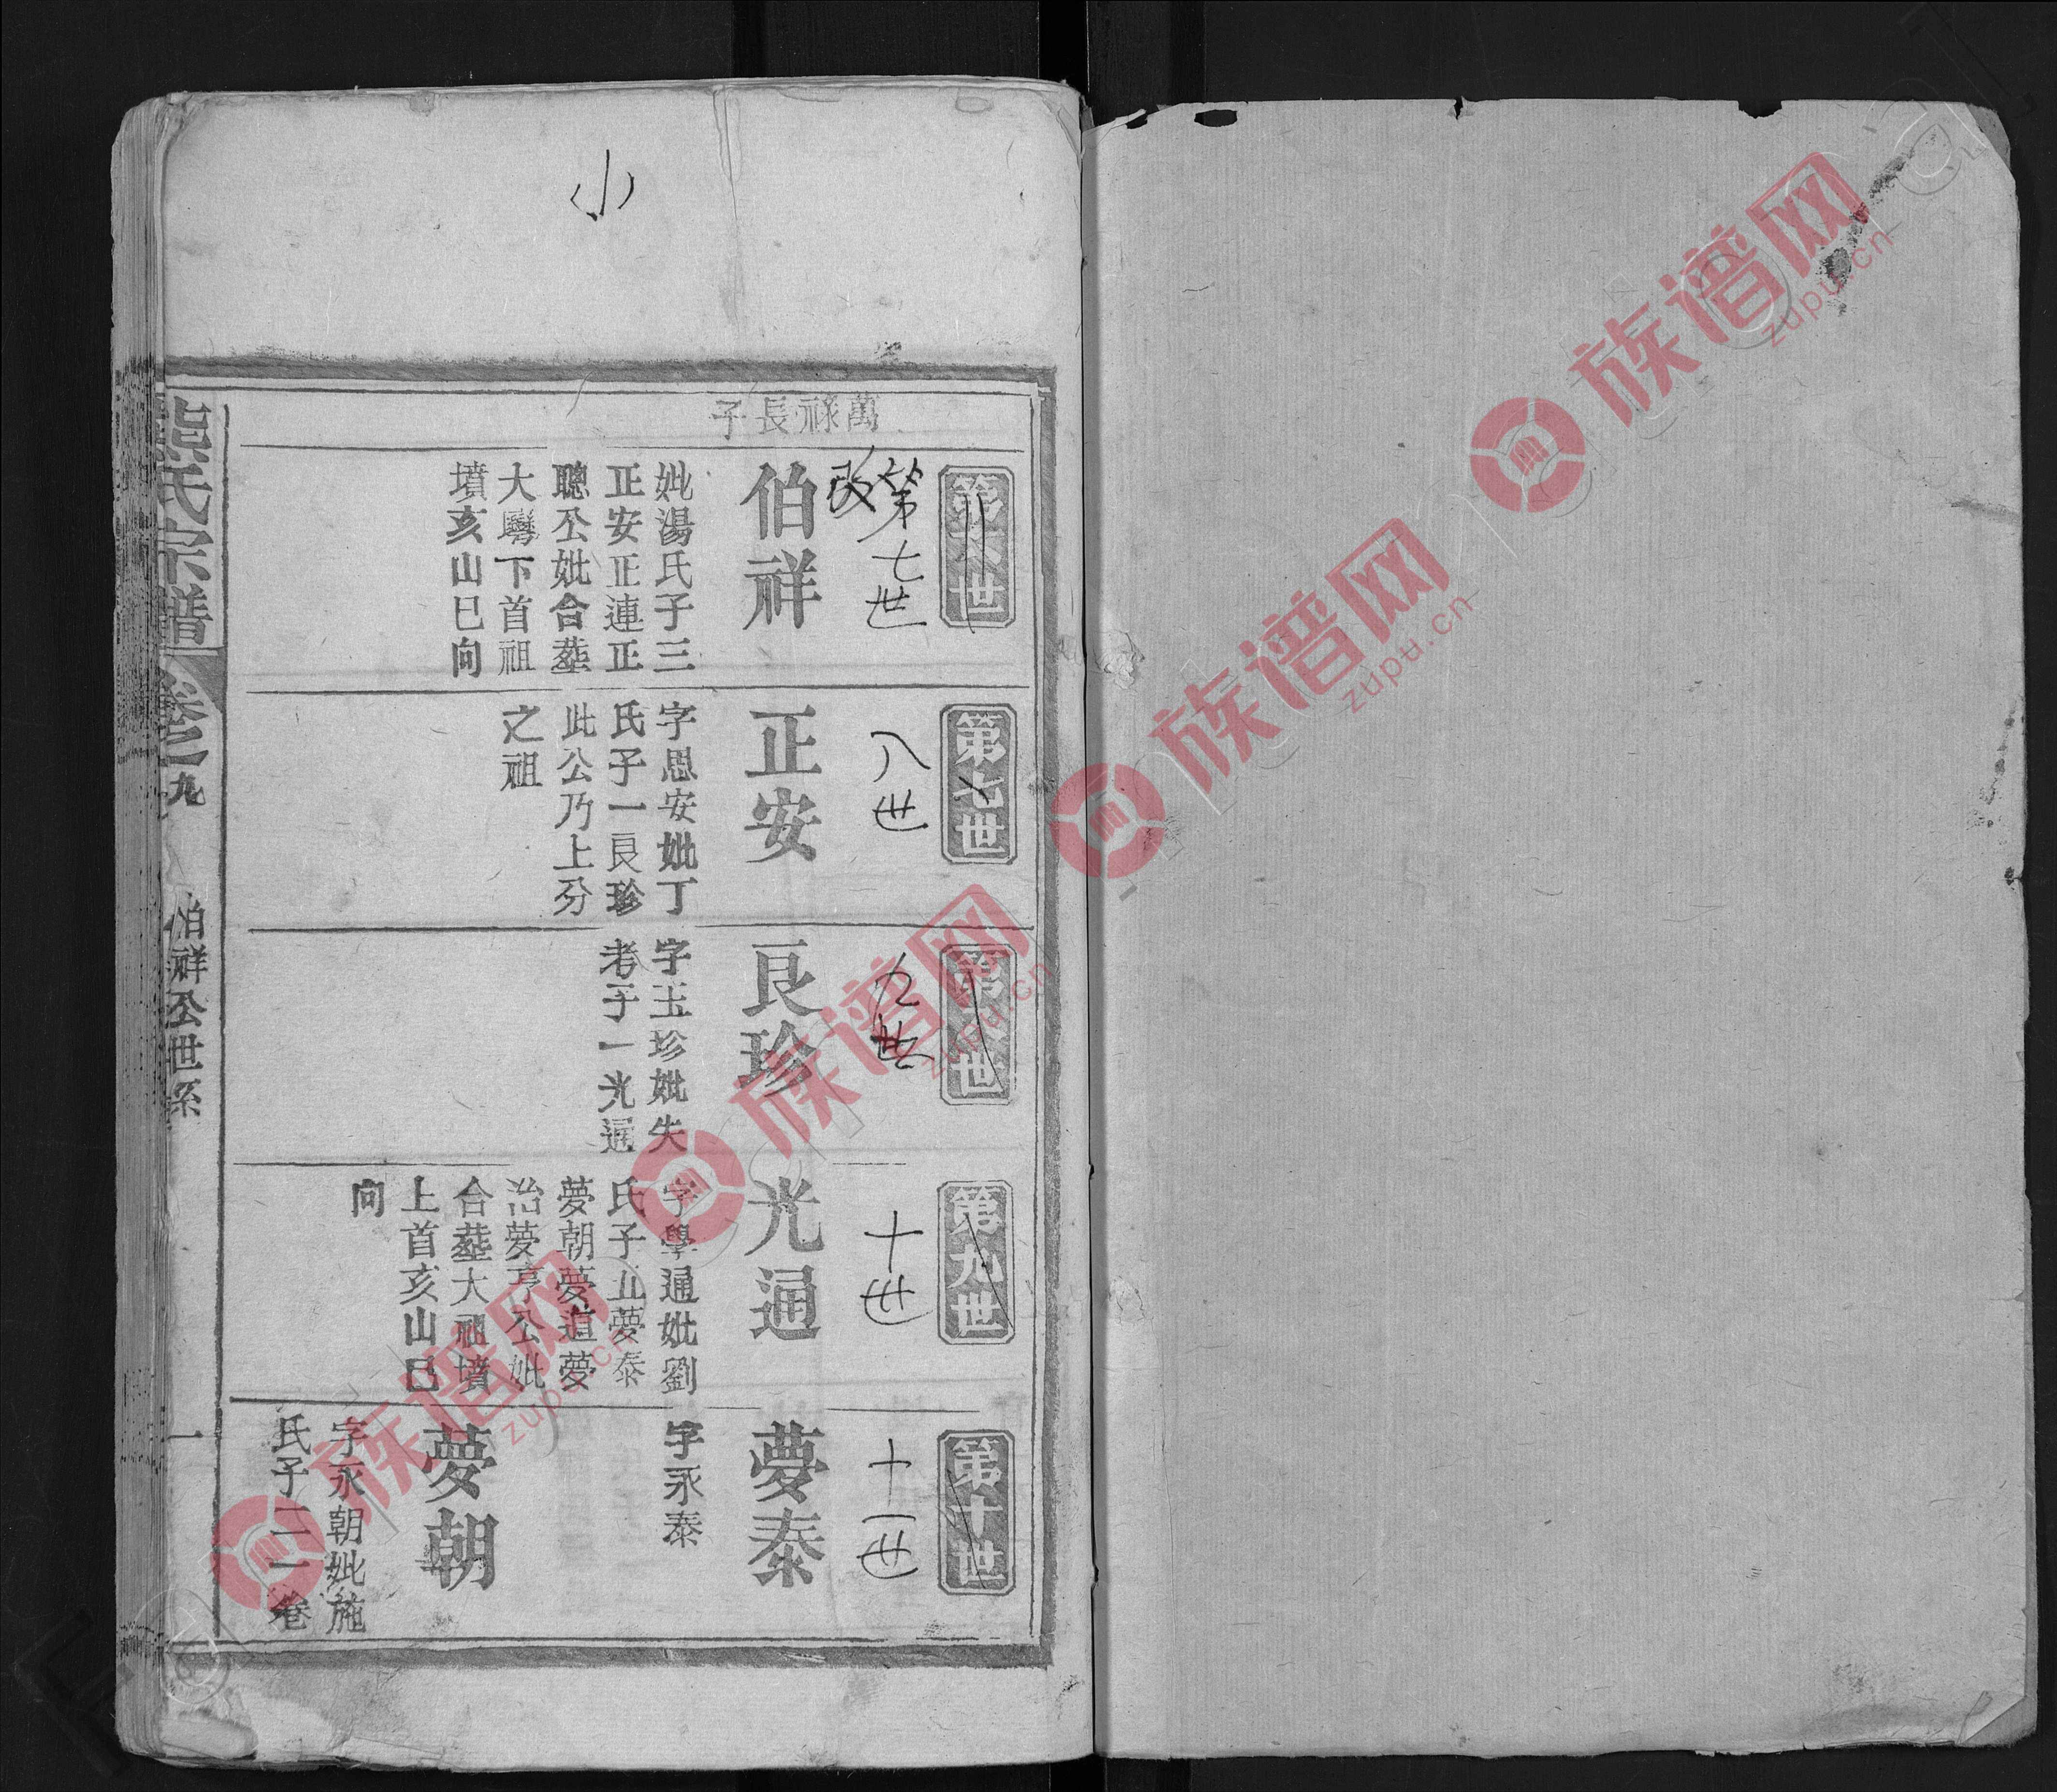 小
萬祿長子
第六世
改第七世
伯祥
妣湯氏子三
正安正連正
聰公妣合塟
大塆下首祖
墳亥山巳向
第七世
八世
正安
字恩安妣丁
氏子一良珍
此公乃上分
之祖
第八世
九世
良珍
字玉珍妣失
考子一光通
第九世
十世
光通
字學通妣劉
氏子五夢泰
夢朝夢道夢
治夢亨公妣
合塟大祖墳
上首亥山巳
向
第十世
十一世
夢泰
字永泰
夢朝
字永朝妣施
氏子二一卷
熊氏宗譜
卷之九
伯祥公世系
一
族谱网
zupu.cn
族谱网
zupu.cn
族谱网
zupu.cn
族谱网
zupu.cn